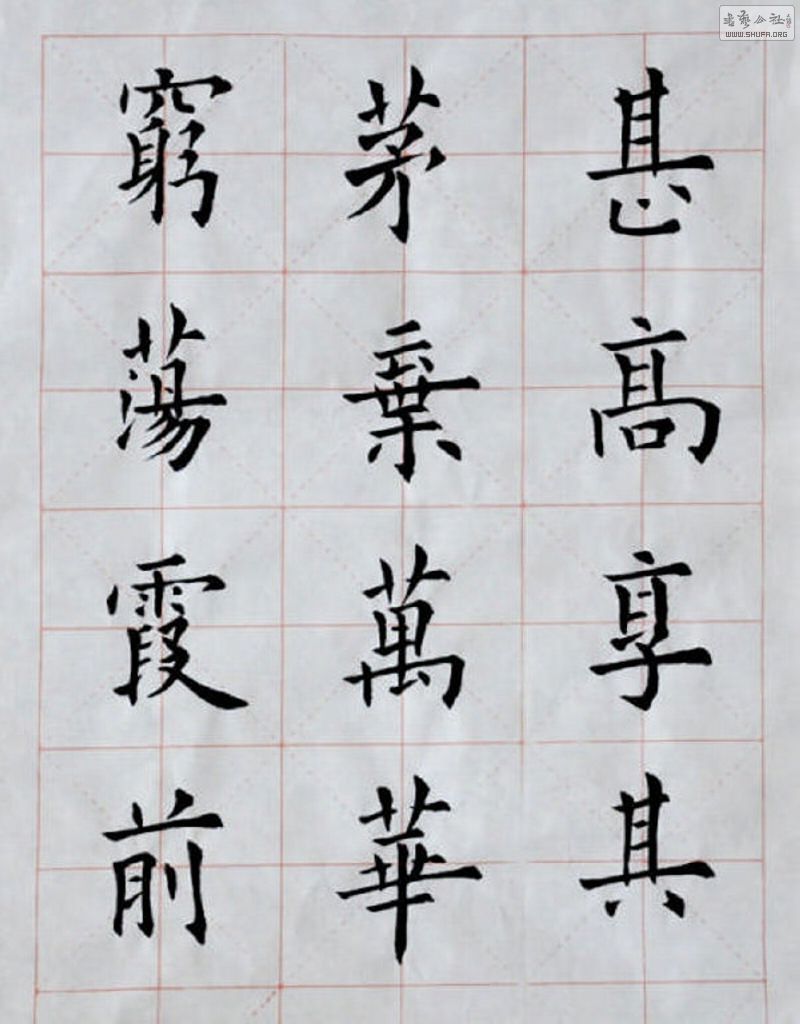 甚高享其
茅棄萬華
窮蕩霞前
書藝公社
WWW.SHUFA.ORG